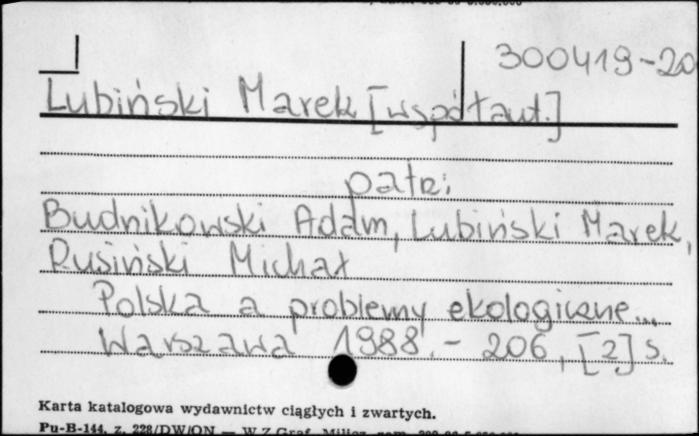 300419-20
Lubiński Marek [współaut.]
patrz:
Budnikowski Adam, Lubiński Marek,
Rusiński Michał
Polska a problemy ekologiczne...
Warszawa 1988. - 206, [2] s.
Karta katalogowa wydawnictw ciągłych i zwartych.
Pu-B-144, z. 228/DW/ON — W.Z.Graf. Milicz